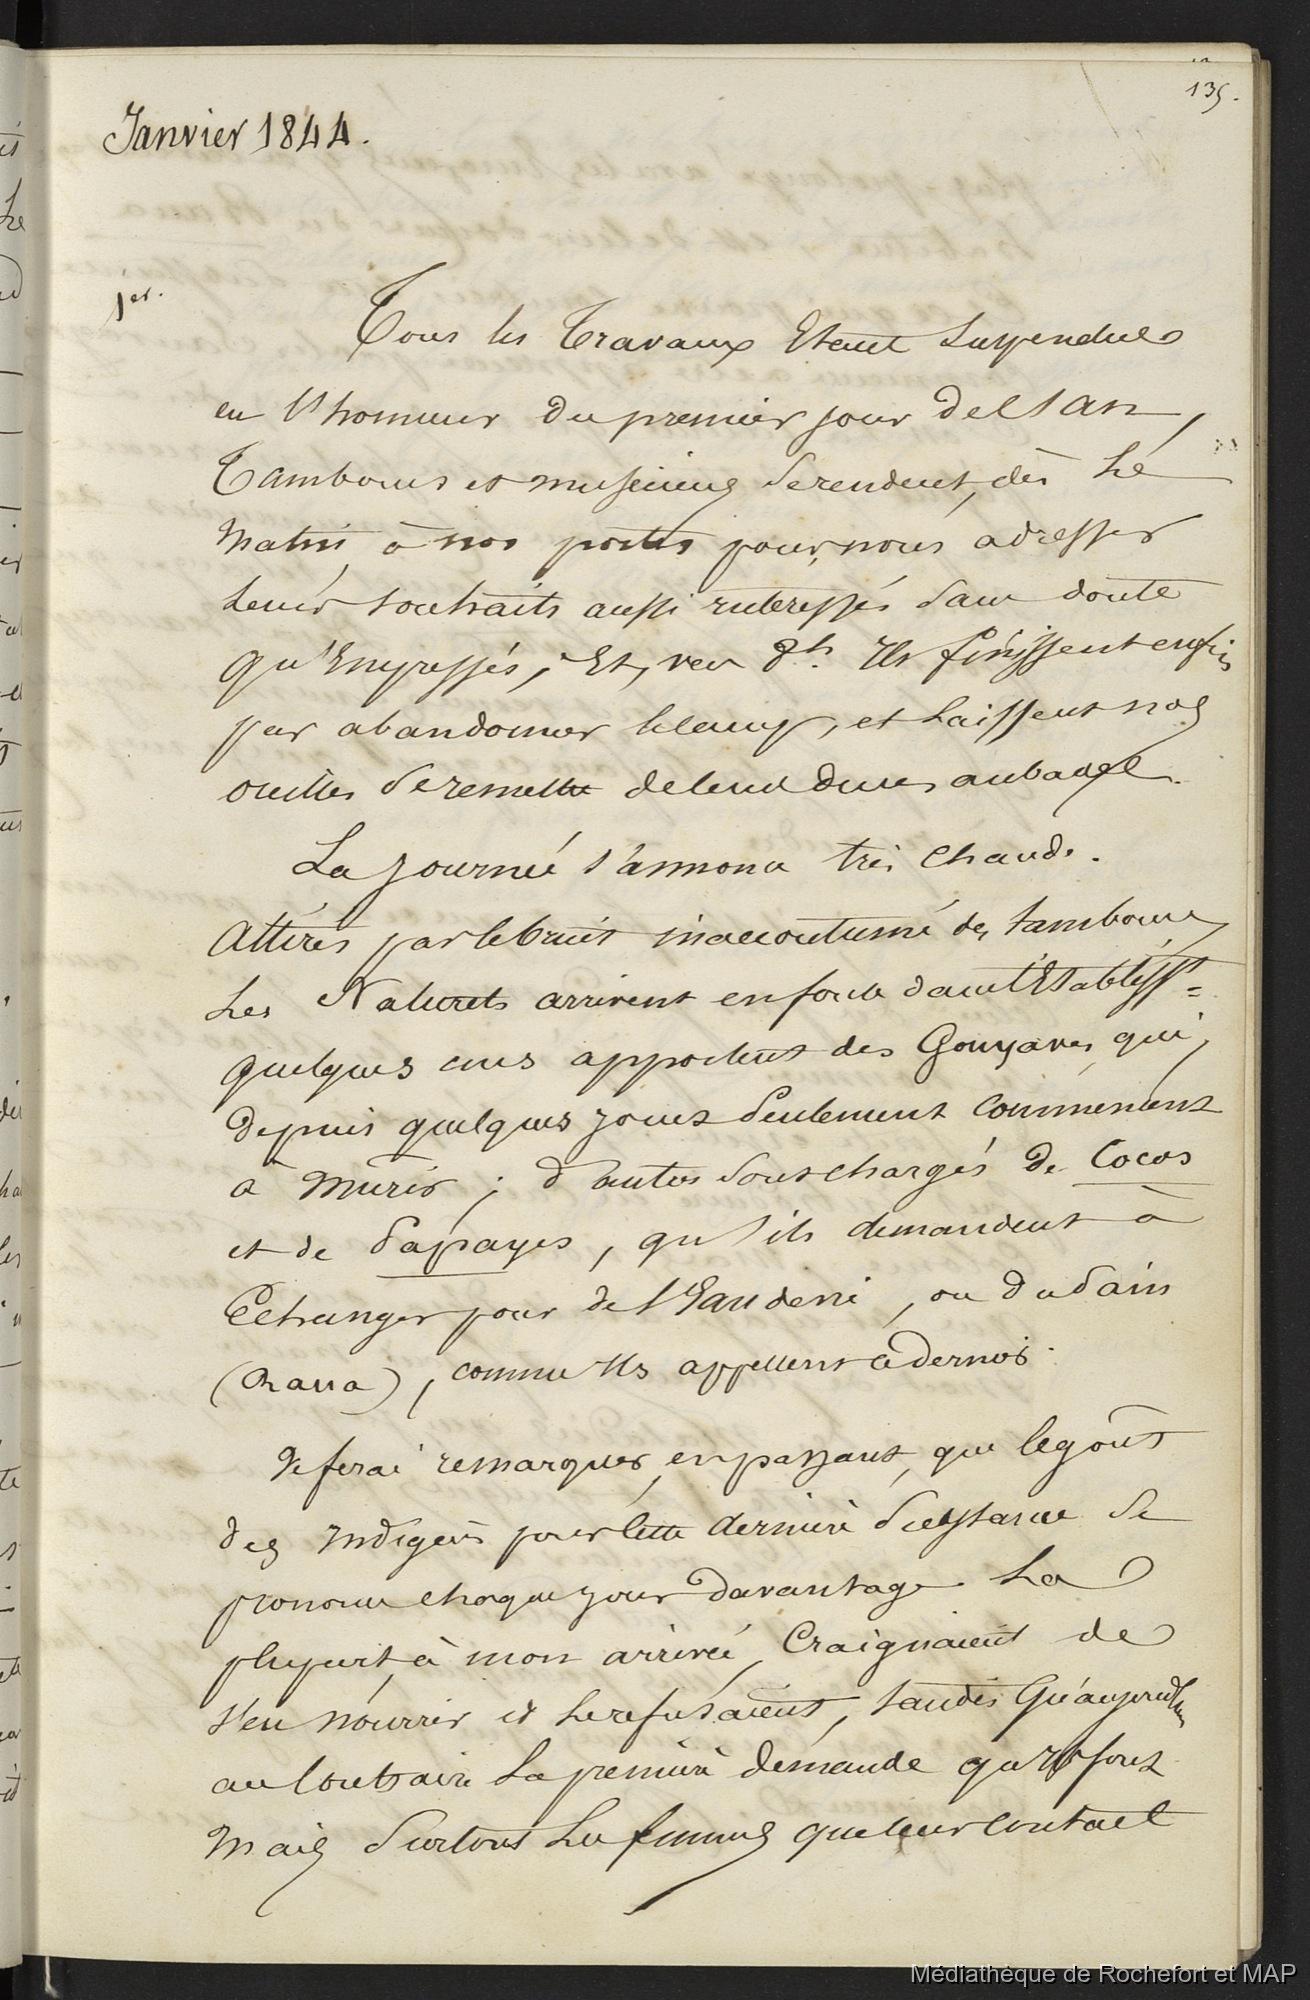 135.
Janvier 1844.
1er.
Tous les Travaux Etant Suspendus
en l'honneur du premier jour de l'an,
Tambours et musiciens se rendent, dès le
matin, à nos portes pour nous adresser
leurs souhaits aussi intéressés sans doute
qu'Empressés; Et, vers 8h. Ils finissent enfin
par abandonner le camp, et laissent nos
oreilles se remettre de leurs dures aubades.
La journée s'annonce très chaude.
Attirés par le bruit inaccoutumé des tambours,
Les Naturels arrivent en foule dans l'Etablisst=
quelques uns apportent des Gouyaves, qui,
depuis quelques jours seulement commencent
à mûrir; d'autres sont chargés de Cocos
et de Papayes, qu'ils demandent à
Echanger pour de l'Eau de vie, ou du Pain
(Raua), comme Ils appellent ce dernier.
Je ferai remarquer, en passant, que le goût
des Indigènes pour cette dernière substance se
prononce chaque jour davantage. La
plupart, à mon arrivée, Craignaient de
s'en nourrir et le refusaient, tandis Qu'aujourd'hui
au Contraire La première demande qu'Ils font
Mais surtout Les femmes que leur contact